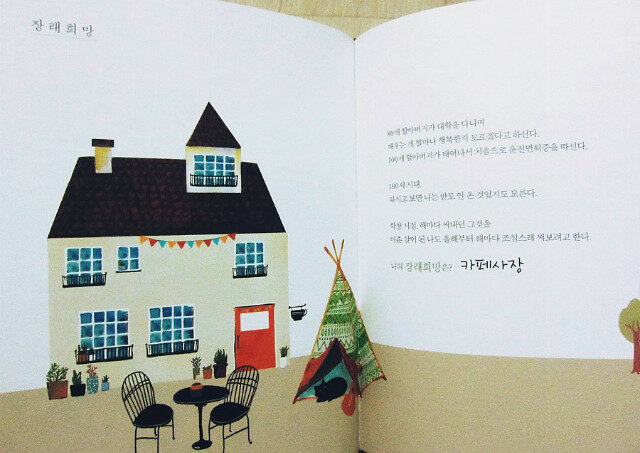 장래희망
80세 할아버지가 대학을 다니며
배우는 게 얼마나 행복한지 모르겠다고 하신다.
100세 할아버지가 태어나서 처음으로 운전면허증을 따신다.
100세 시대.
따지고 보면 나는 반도 안 온 것일지도 모른다.
학창 시절, 해마다 써내던 그것을
마흔 살이 된 나도 올해부터 해마다 조심스레 써보려고 한다.
나의 장래희망은? 카페사장